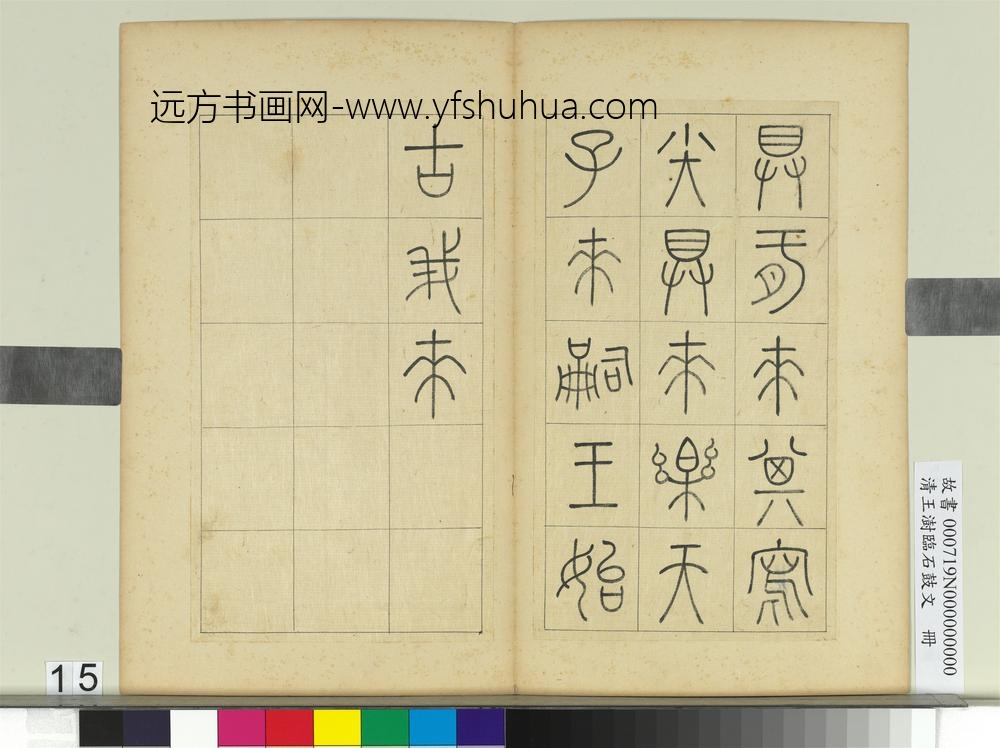 远方书画网-www.yfshuhua.com
具肝來其寫
尖具來樂天
子來嗣王始
古我來
故書 000719N000000000
清王澍臨石鼓文 冊
15